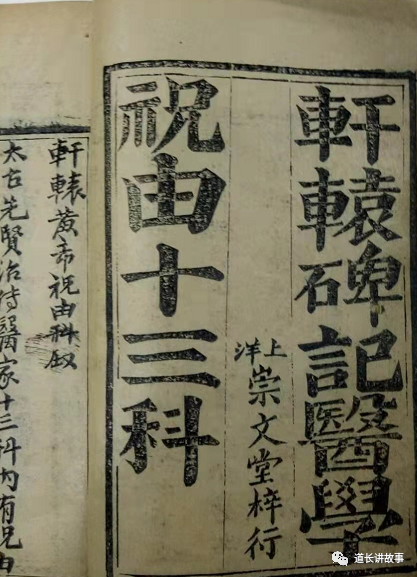 軒轅碑記醫學
上洋
崇文堂梓行
祝由十三科
軒轅黃帝祝由科叙
太古先賢治醫家十三科內有祝由
道长讲故事